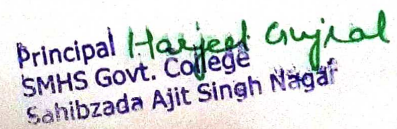 Principal Harjeet Gujral
SMHS Govt. College
Sahibzada Ajit Singh Nagar